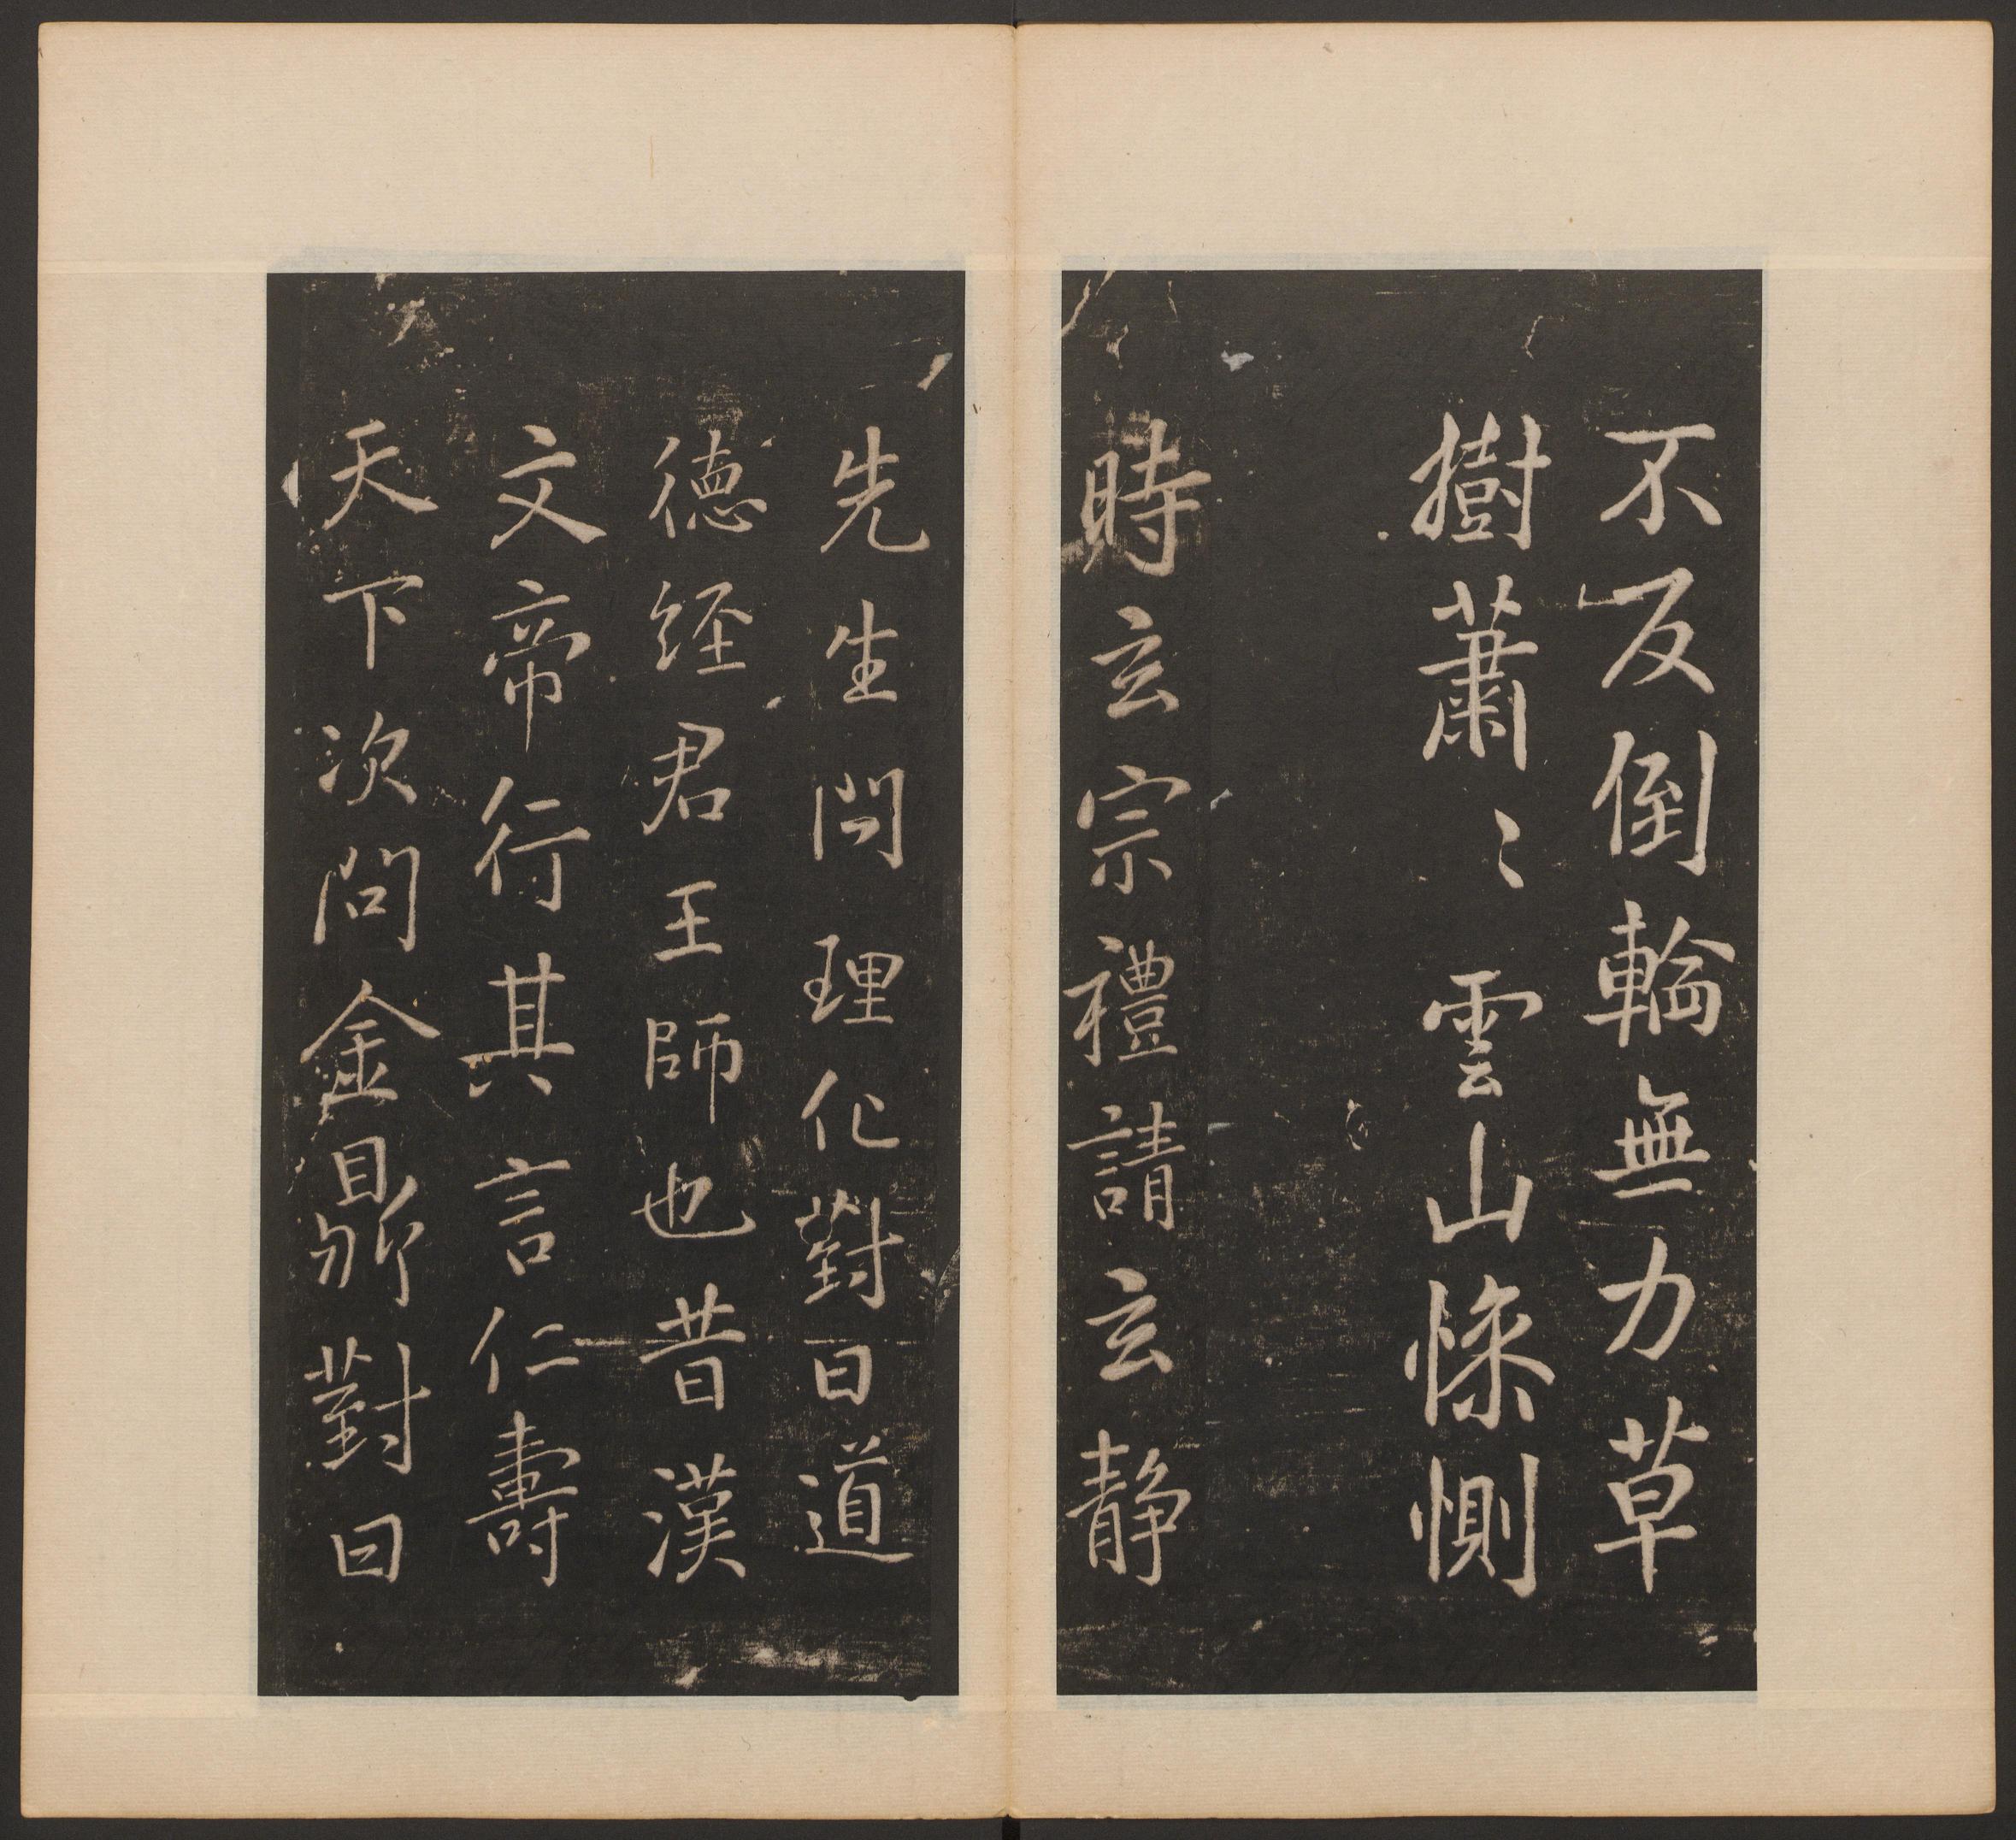 不反倒輪無力草
樹蕭〻雲山慘惻
時玄宗禮請玄靜
先生問理化對曰道
德經君王師也昔漢
文帝行其言仁壽
天下次問金鼎對曰